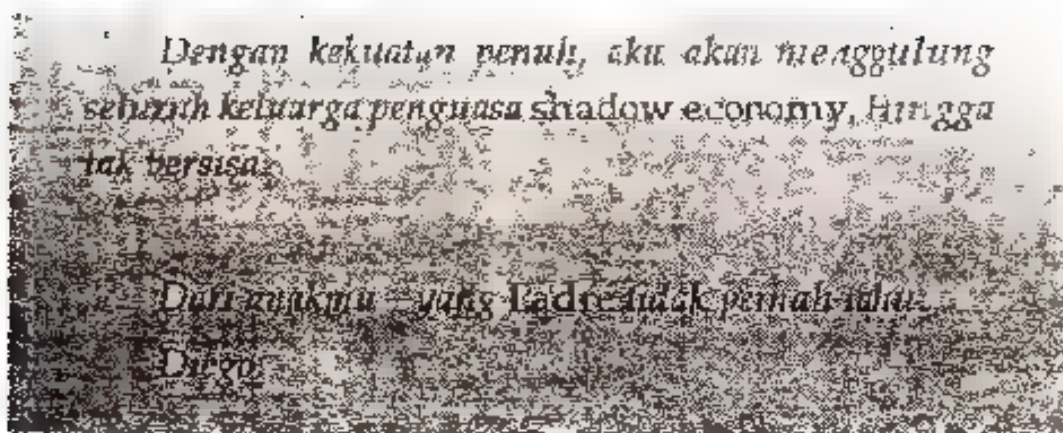 Dengan kekuatan penuh, aku akan menggulung
seluruh keluarga penguasa shadow economy, Hingga
tak bersisa.
Dari anakmu – yang Padre tidak pernah tahu.